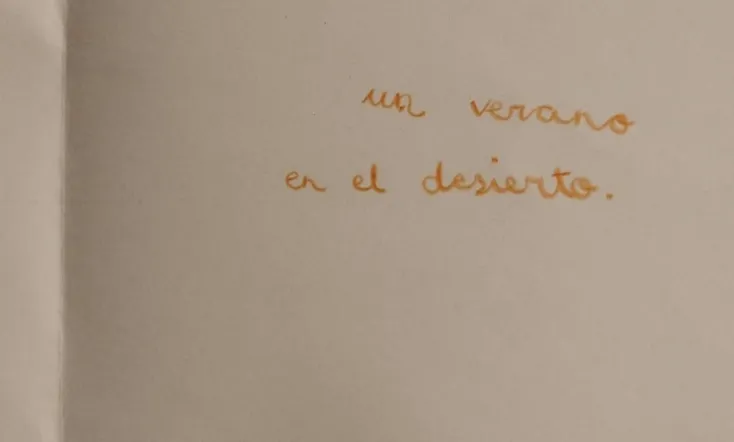 un verano
en el desierto.